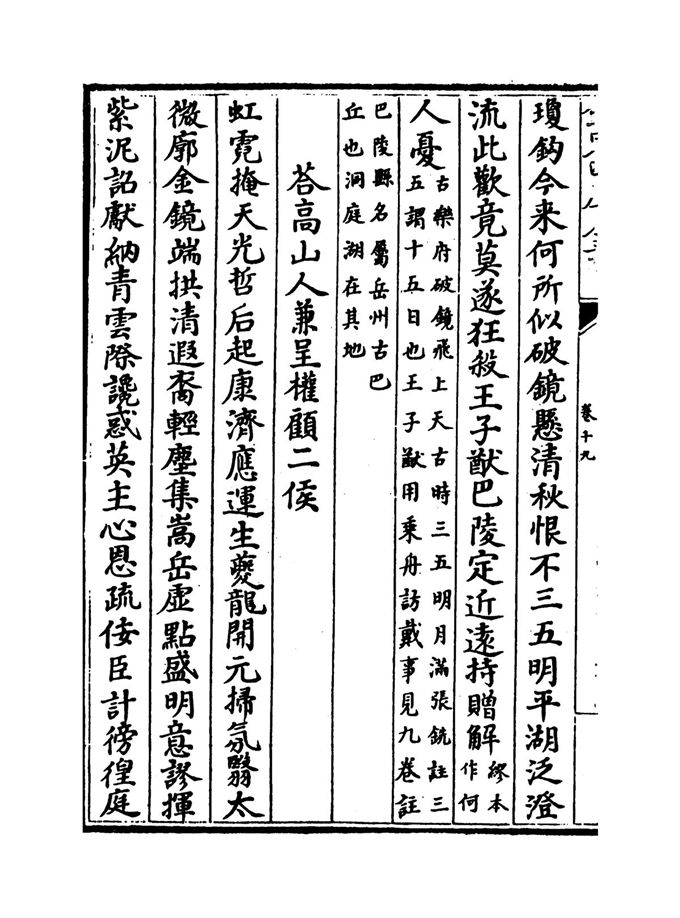 卷十九
瓊鈎今来何所似破鏡懸清秋恨不三五明平湖泛澄
流此歡竟莫遂狂殺王子猷巴陵定近遠持贈解繆本作何
人憂古樂府破鏡飛上天古時三五明月滿張銑註三五謂十五日也王子猷用乗舟訪戴事見九卷註
巴陵縣名屬岳州古巴丘也洞庭湖在其地
荅高山人兼呈權顧二侯
虹霓掩天光哲后起康濟應運生夔龍開元掃氛翳太
微廓金鏡端拱清遐裔輕塵集嵩岳虛點盛明意謬揮
紫泥詔獻納青雲際讒惑英主心恩疏佞臣計徬徨庭